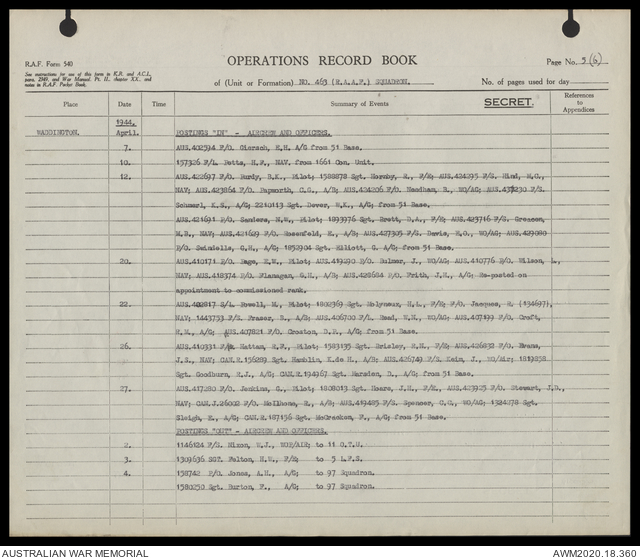 R.A.F. Form 540
OPERATIONS RECORD BOOK
Page No. 5 (6)
See instructions for use of this form in K.R. and A.C.I.,
para. 2349, and War Manual, Pt. II., chapter XX., and
notes in R.A.F. Pocket Book.
of (Unit or Formation) NO. 463 (R.A.A.F.) SQUADRON.
No. of pages used for day
Place Date Time Summary of Events SECRET. References to Appendices
1944.
WADDINGTON. April. POSTINGS "IN" - AIRCREW AND OFFICERS.
7. AUS.402594 F/O. Giersch, E.H. A/G from 51 Base.
10. 157326 F/L. Betts, H.F., NAV. from 1661 Con. Unit.
12. AUS.422697 F/O. Purdy, B.K., Pilot; 1588878 Sgt. Hornby, R., F/E; AUS.424295 F/S. Hind, M.C.,
NAV; AUS.423864 F/O. Papworth, C.S., A/B; AUS.424206 F/O. Needham, R., WO/AG; F/S.
K.S., A/G; 2210113 Sgt. Dever, W.K., A/G; from 51 Base.
AUS.421691 F/O. Sanders, H.W., Pilot; 1893976 Sgt. Brett, D.A., F/E; AUS.423716 F/S. Greacen,
M.B., NAV; AUS.421609 F/O. Rosenfeld, E., A/B; AUS.427305 F/S. Davis, E.O., WO/AG; AUS.429080
F/O. Swindells, G.H., A/G; 1852904 Sgt. Elliott, G. A/G; from 51 Base.
20. AUS.410171 P/O. Page, E.W., Pilot; AUS.419290 P/O. Bulmer, J., WO/AG; AUS.410776 P/O. Wilson, L.,
NAV; AUS.418374 P/O. Flanagan, G.H., A/B; AUS.428684 P/O. Frith, J.H., A/G; Re-posted on
appointment to commissioned rank.
22. S/L. Powell, M., Pilot; 1802369 Sgt. Molyneux, H.L., F/E; F/O. Jacques, R. (134697),
NAV; 1443753 F/S. Fraser, R., A/B; AUS.406700 F/L. Read, W.M., WO/AG; AUS.407199 F/O. Croft,
R.M., A/G; AUS.407821 F/O. Croston, D.P., A/G; from 51 Base.
26. AUS.410331 Hattam, R.F., Pilot; 1583135 Sgt. Brisley, R.H., F/E; AUS.426832 F/O. Evans,
J.S., NAV; CAN.R.156289 Sgt. Hamblin, K.de H., A/B; AUS.426749 F/S. Keim, J., WO/Air; 1819838
Sgt. Goodburn, R.J., A/G; CAN.R.194967 Sgt. Marsden, D., A/G; from 51 Base.
27. AUS.417280 F/O. Jenkins, G., Pilot; 1808013 Sgt. Hoare, J.H., F/E; AUS.423925 F/O. Stewart, J.D.,
NAV; CAN.J.26002 F/O. Mellhone, R., A/B; AUS.419485 F/S. Spencer, C.C., WO/AG; 1324278 Sgt.
Sleigh, E., A/G; CAN.R.187156 Sgt. McCracken, F., A/G; from 51 Base.
POSTINGS "OUT" - AIRCREW AND OFFICERS.
2. 1146124 F/S. Nixon, W.J., WOP/AIR; to 11 O.T.U.
3. 1309636 SGT. Felton, H.W., F/E; to 5 L.F.S.
4. 158742 P/O. Jones, A.H., A/G; to 97 Squadron.
1580250 Sgt. Burton, F., A/G; to 97 Squadron.
AUSTRALIAN WAR MEMORIAL
AWM2020.18.360